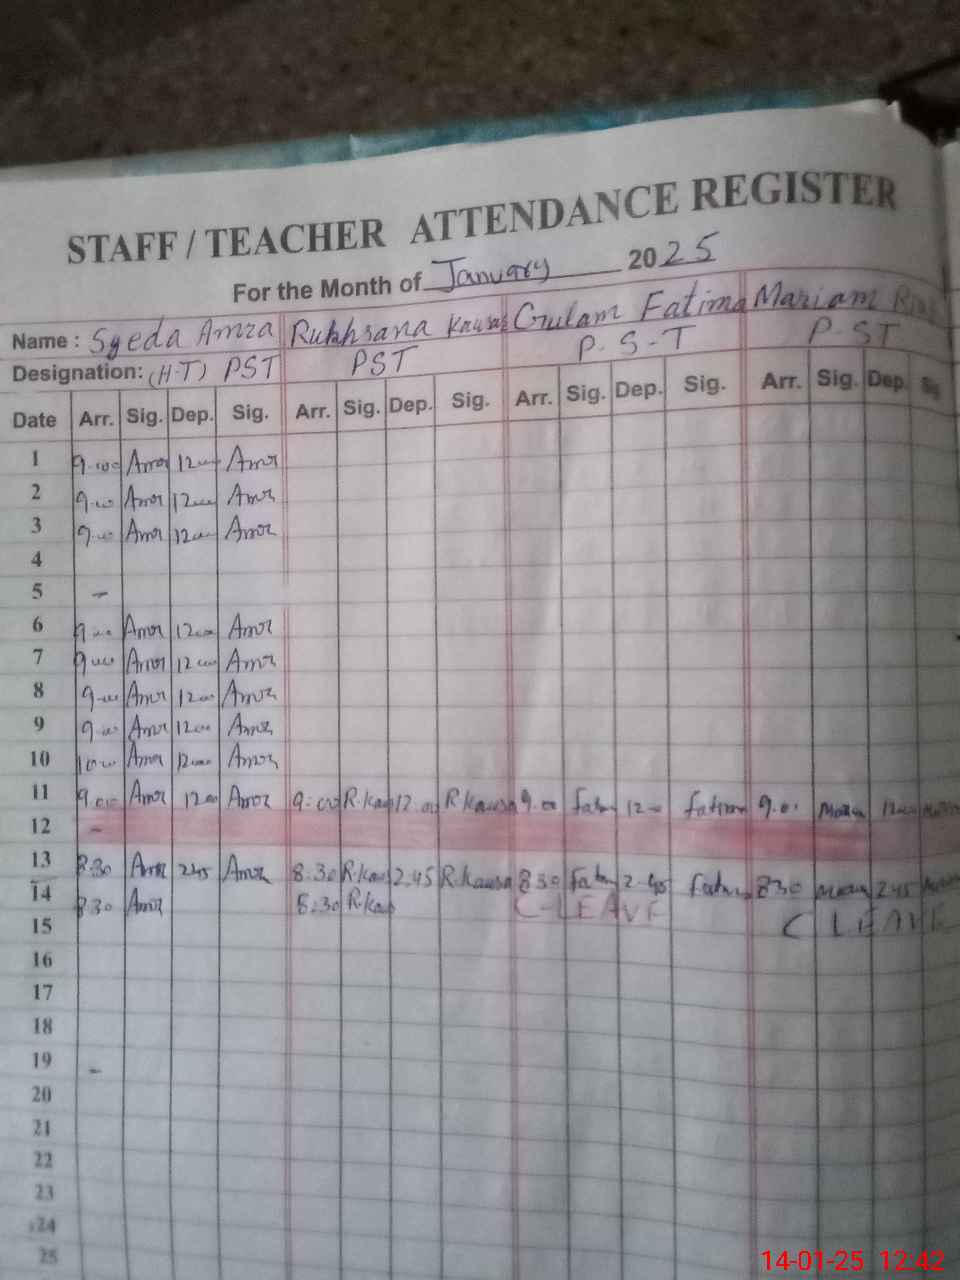 STAFF / TEACHER ATTENDANCE REGISTER
For the Month of January 2025
Name : Syeda Amra Rukhsana Kausar Gulam Fatima Mariam
Designation: (H-T) PST PST P.S-T P.ST
Date Arr. Sig. Dep. Sig. Arr. Sig. Dep. Sig. Arr. Sig. Dep. Sig. Arr. Sig. Dep. Sig
1 9.00 Amr 12.00 Amr
2 9.00 Amr 12.00 Amr
3 9.00 Amr 12.00 Amr
4
5 -
6 9.00 Amr 12.00 Amr
7 9.00 Amr 12.00 Amr
8 9.00 Amr 12.00 Amr
9 9.00 Amr 12.00 Amr
10 10.00 Amr 12.00 Amr
11 9.00 Amr 12.00 Amr 9:00 R.Kau 12.00 R.Kausa 9.00 Fatm 12.00 fatima 9.00 12.00
12 -
13 8.30 Amr 2.45 Amr 8.30 R.Kau 2.45 R.Kausa 8.30 Fatm 2.45 Fatm 8.30 2.45
14 8.30 Amr 8.30 R.Kau C-LEAVE C LEAVE
15
16
17
18
19 -
20
21
22
23
24
25
14-01-25 12:42